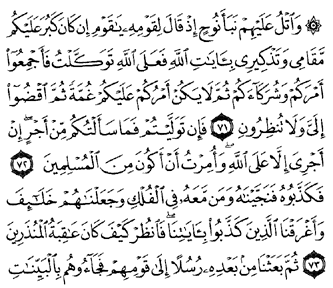 ۞ وَٱتْلُ عَلَيْهِمْ نَبَأَ نُوحٍ إِذْ قَالَ لِقَوْمِهِۦ يَٰقَوْمِ إِن كَانَ كَبُرَ عَلَيْكُم
مَّقَامِى وَتَذْكِيرِى بِـَٔايَٰتِ ٱللَّهِ فَعَلَى ٱللَّهِ تَوَكَّلْتُ فَأَجْمِعُوٓا۟
أَمْرَكُمْ وَشُرَكَآءَكُمْ ثُمَّ لَا يَكُنْ أَمْرُكُمْ عَلَيْكُمْ غُمَّةً ثُمَّ ٱقْضُوٓا۟
إِلَىَّ وَلَا تُنظِرُونِ ٧١ فَإِن تَوَلَّيْتُمْ فَمَا سَأَلْتُكُم مِّنْ أَجْرٍ ۖ إِنْ
أَجْرِىَ إِلَّا عَلَى ٱللَّهِ ۖ وَأُمِرْتُ أَنْ أَكُونَ مِنَ ٱلْمُسْلِمِينَ ٧٢
فَكَذَّبُوهُ فَنَجَّيْنَٰهُ وَمَن مَّعَهُۥ فِى ٱلْفُلْكِ وَجَعَلْنَٰهُمْ خَلَٰٓئِفَ
وَأَغْرَقْنَا ٱلَّذِينَ كَذَّبُوا۟ بِـَٔايَٰتِنَا ۖ فَٱنظُرْ كَيْفَ كَانَ عَٰقِبَةُ ٱلْمُنذَرِينَ
٧٣ ثُمَّ بَعَثْنَا مِنۢ بَعْدِهِۦ رُسُلًا إِلَىٰ قَوْمِهِمْ فَجَآءُوهُم بِٱلْبَيِّنَٰتِ